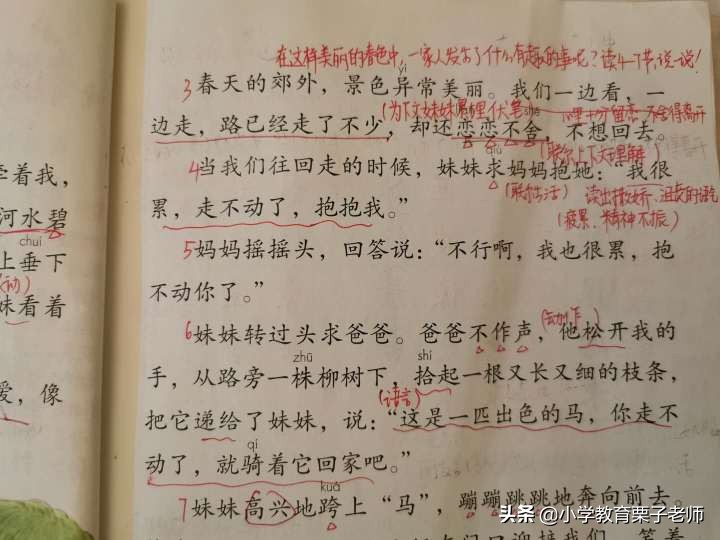 在这样美丽的春色中，一家人发生了什么有趣的事呢？读4-7节，说一说！
yì
3春天的郊外，景色异常美丽。我们一边看，一
(为下文妹妹累埋伏笔)
shě
心里十分留恋，不舍得离开
边走，路已经走了不少，却还恋恋不舍，不想回去。
qiú
(联系上下文理解)
牵着我，
4当我们往回走的时候，妹妹求妈妈抱她：“我很
(联系生活)
读出撒娇、
河水碧
累，走不动了，抱抱我。”
(疲累、精神不振)
chuí
上垂下
5妈妈摇摇头，回答说：“不行啊，我也很累，抱
(动)
妹看着
不动你了。”
(动作)
6妹妹转过头求爸爸。爸爸不作声，他松开我的
zhū
shí
手，从路旁一株柳树下，拾起一根又长又细的枝条，
爱，像
(语言)
把它递给了妹妹，说：“这是一匹出色的马，你走不
qí
动了，就骑着它回家吧。”
kuà
7妹妹高兴地跨上“马”，蹦蹦跳跳地奔向前去。
头条 @小学教育栗子老师